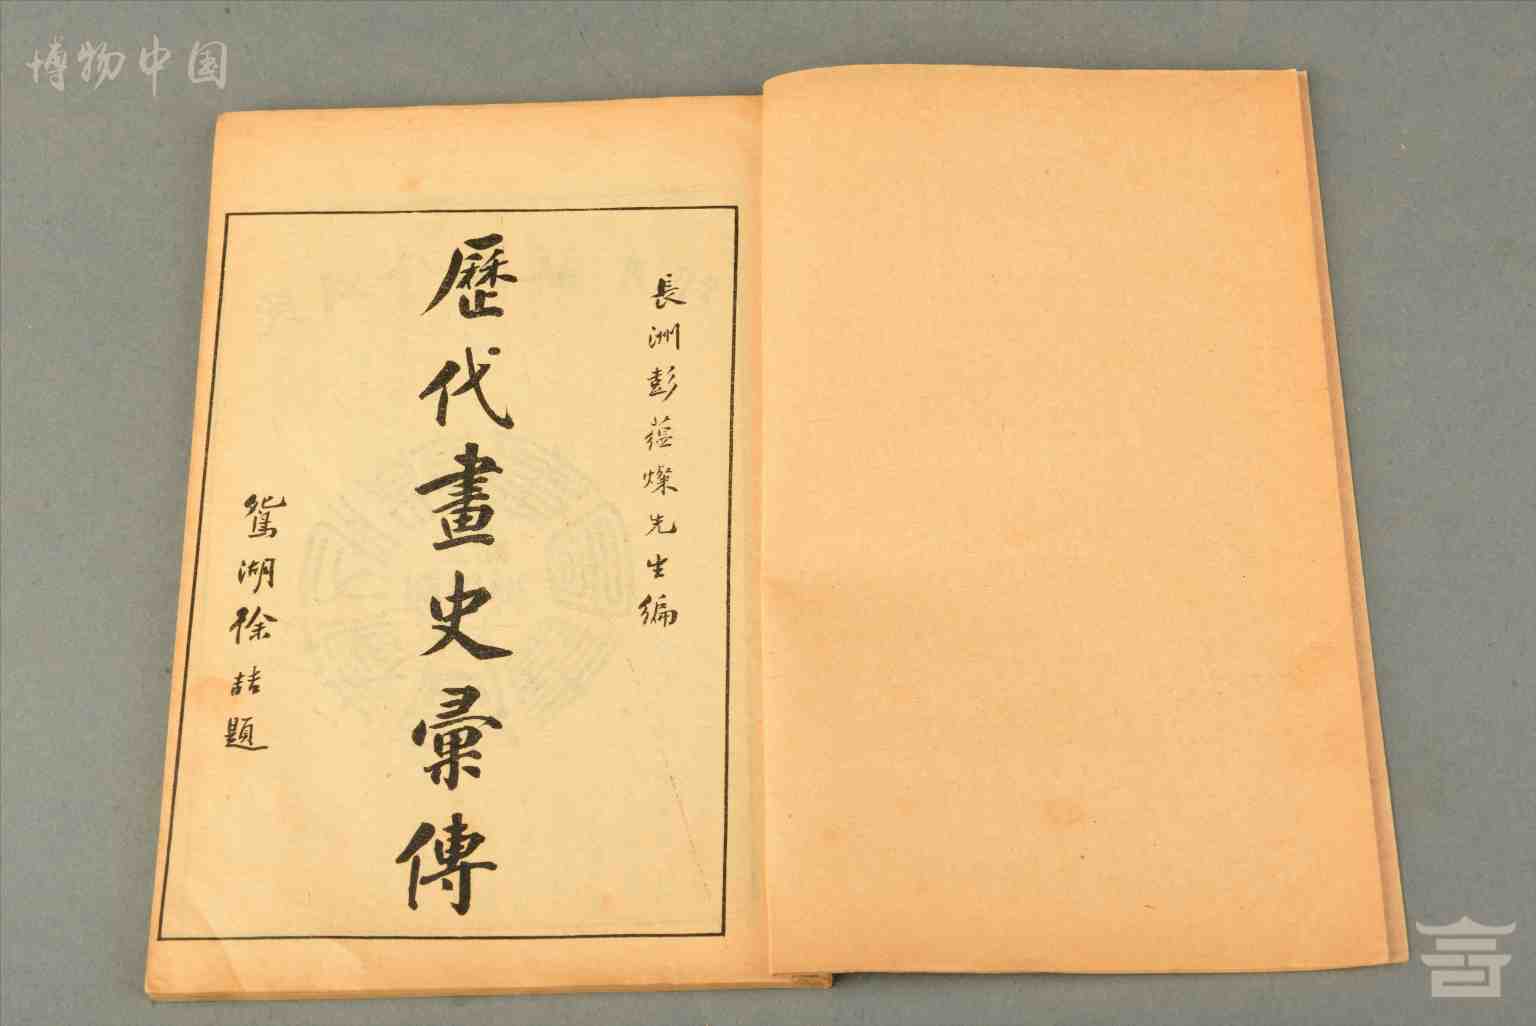 博物中国
長洲彭蕴燦先生編
歷代畫史彙傳
鴛湖徐喆題